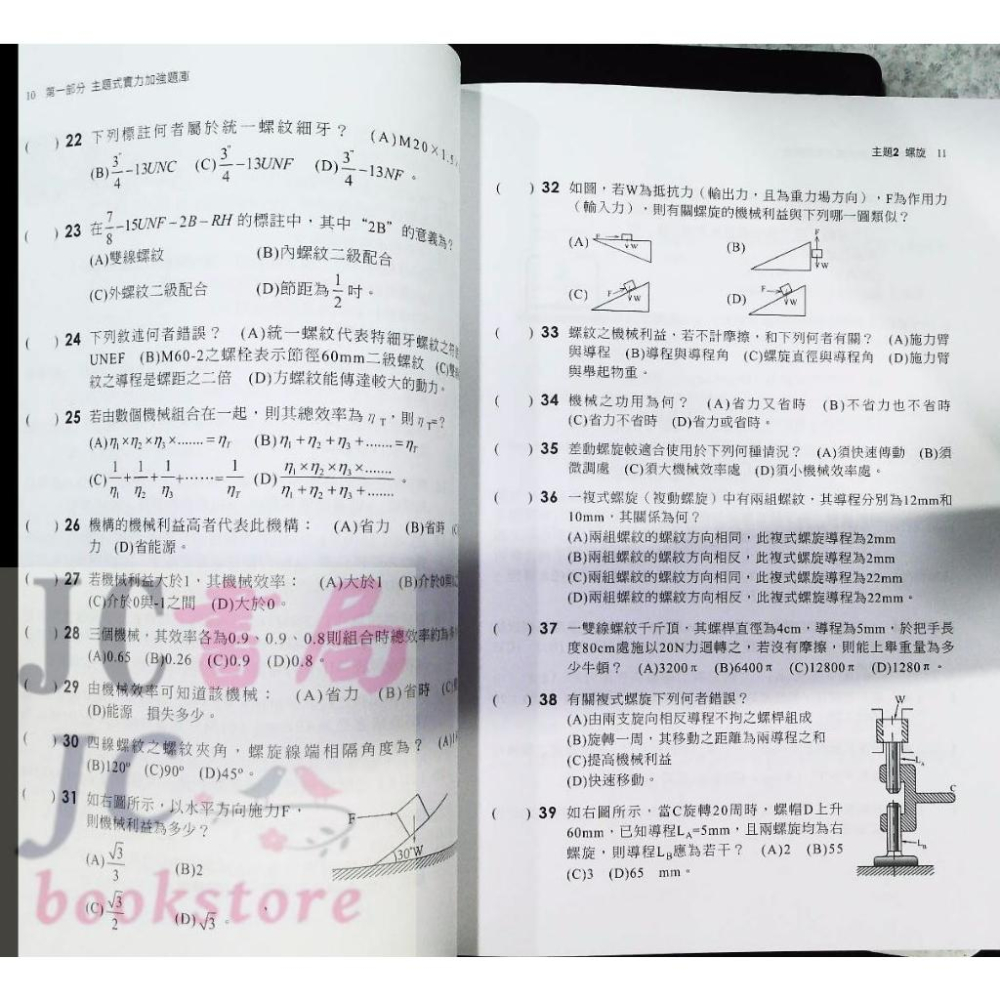 10 第一部分 主題式實力加強題庫
( ) 22 下列標註何者屬於統一螺紋細牙? (A)M20×1.5
(B)3"/4-13UNC (C)3"/4-13UNF (D)3"/4-13NF。
( ) 23 在7/8-15UNF-2B-RH的標註中,其中“2B”的意義為?
(A)雙線螺紋 (B)內螺紋二級配合
(C)外螺紋二級配合 (D)節距為1/2吋。
( ) 24 下列敘述何者錯誤? (A)統一螺紋代表特細牙螺紋之符
UNEF (B)M60-2之螺栓表示節徑60mm二級螺紋 (C)
紋之導程是螺距之二倍 (D)方螺紋能傳達較大的動力。
( ) 25 若由數個機械組合在一起,則其總效率為ηT,則ηT=?
(A)η1×η2×η3×.......=ηT (B)η1+η2+η3+.......=ηT
(C)1/η1+1/η2+1/η3+......=1/ηT (D)η1×η2×η3×......./η1+η2+η3+.......。
( ) 26 機構的機械利益高者代表此機構: (A)省力 (B)省時
力 (D)省能源。
( ) 27 若機械利益大於1,其機械效率: (A)大於1 (B)介於0
(C)介於0與-1之間 (D)大於0。
( ) 28 三個機械,其效率各為0.9、0.9、0.8則組合時總效率約為
(A)0.65 (B)0.26 (C)0.9 (D)0.8。
( ) 29 由機械效率可知道該機械: (A)省力 (B)省時
(D)能源 損失多少。
( ) 30 四線螺紋之螺紋夾角,螺旋線端相隔角度為?
(B)120° (C)90° (D)45°。
( ) 31 如右圖所示,以水平方向施力F,
則機械利益為多少?
(A)√3/3 (B)2
(C)√3/2 (D)√3。
F
W
30°
JC書局
JC
bookstore
主題2 螺旋 11
( ) 32 如圖,若W為抵抗力(輸出力,且為重力場方向),F為作用力
(輸入力),則有關螺旋的機械利益與下列哪一圖類似?
(A) F W (B) F W
(C) F W (D) F W
( ) 33 螺紋之機械利益,若不計摩擦,和下列何者有關? (A)施力臂
與導程 (B)導程與導程角 (C)螺旋直徑與導程角 (D)施力臂
與舉起物重。
( ) 34 機械之功用為何? (A)省力又省時 (B)不省力也不省時
(C)省力不省時 (D)省力或省時。
( ) 35 差動螺旋較適合使用於下列何種情況? (A)須快速傳動 (B)須
微調處 (C)須大機械效率處 (D)須小機械效率處。
( ) 36 一複式螺旋(複動螺旋)中有兩組螺紋,其導程分別為12mm和
10mm,其關係為何?
(A)兩組螺紋的螺紋方向相同,此複式螺旋導程為2mm
(B)兩組螺紋的螺紋方向相反,此複式螺旋導程為2mm
(C)兩組螺紋的螺紋方向相同,此複式螺旋導程為22mm
(D)兩組螺紋的螺紋方向相反,此複式螺旋導程為22mm。
( ) 37 一雙線螺紋千斤頂,其螺桿直徑為4cm,導程為5mm,於把手長
度80cm處施以20N力迴轉之,若沒有摩擦,則能上舉重量為多
少牛頓? (A)3200π (B)6400π (C)12800π (D)1280π。
( ) 38 有關複式螺旋下列何者錯誤?
(A)由兩支旋向相反導程不拘之螺桿組成
(B)旋轉一周,其移動之距離為兩導程之和
(C)提高機械利益
(D)快速移動。
( ) 39 如右圖所示,當C旋轉20周時,螺帽D上升
60mm,已知導程LA=5mm,且兩螺旋均為右
螺旋,則導程LB應為若干? (A)2 (B)55
(C)3 (D)65 mm。
W
LA
C
LB